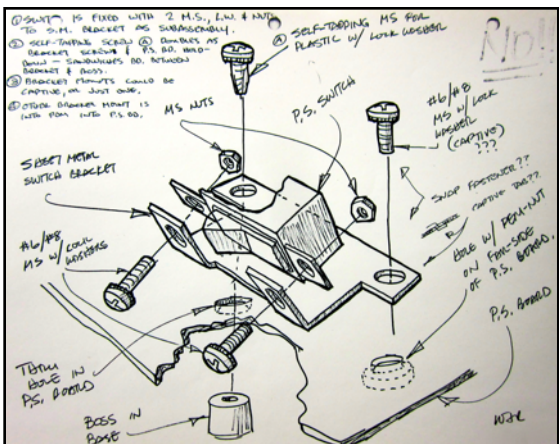 ① SWITCH IS FIXED WITH 2 M.S., L.W. & NUTS
TO S.M. BRACKET AS SUBASSEMBLY.
② SELF-TAPPING SCREW Ⓐ DOUBLES AS
BRACKET SCREWS & P.S. BD. HOLD-
DOWN - SANDWICHES BD. BETWEEN
BRACKET & BOSS.
③ BRACKET MOUNTS COULD BE
CAPTIVE, OR JUST ONE.
④ OTHER BRACKET MOUNT IS
INTO PEM INTO P.S. BD.
Ⓐ SELF-TAPPING MS FOR
PLASTIC W/ LOCK WASHER
No!!
MS NUTS
P.S. SWITCH
#6/#8
MS W/ LOCK
WASHER
(CAPTIVE)
???
SHEET METAL
SWITCH BRACKET
SNAP FASTENER??
CAPTIVE TAB??
#6/#8
MS W/ LOCK
WASHERS
HOLE W/ PEM-NUT
ON FAR-SIDE
OF P.S. BOARD.
P.S. BOARD
THRU
HOLE IN
P.S. BOARD
BOSS IN
BASE